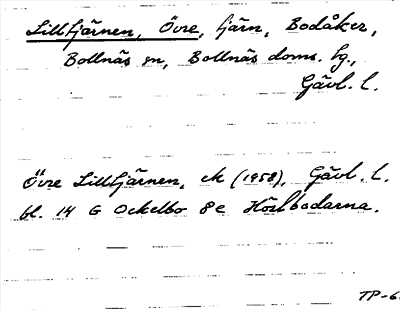 Lilltjärnen, Övre, tjärn, Bodåker,
Bollnäs sn, Bollnäs doms. tg.,
Gävl. l.
Övre Lilltjärnen, ek (1958), Gävl. l.
bl. 14 G Ockelbo 8e Höslbodarna.
TP-6